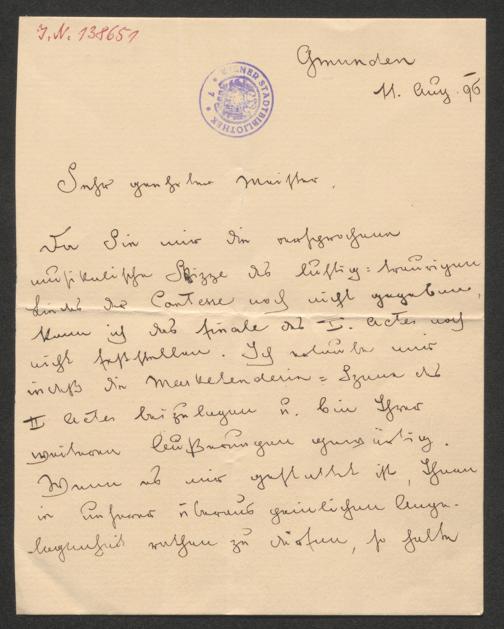 I.N. 138651
WIENER STADTBIBLIOTHEK
Gmunden
11. Aug. 96
Sehr geehrter Meister.
Da Sie mir die versprochene
musikalische Skizze des lustig=traurigen
Liedes der Comtesse noch nicht gegeben,
kann ich das Finale des I. Actes noch
nicht feststellen. Ich erlaube mir
indeß die Marketenderin=Szene des
II Actes beizulegen u. bin Ihrer
weiteren Äußerungen gewärtig.
Wenn es mir gestattet ist, Ihnen
in unserer überaus peinlichen Ange-
legenheit rathen zu dürfen, so halte